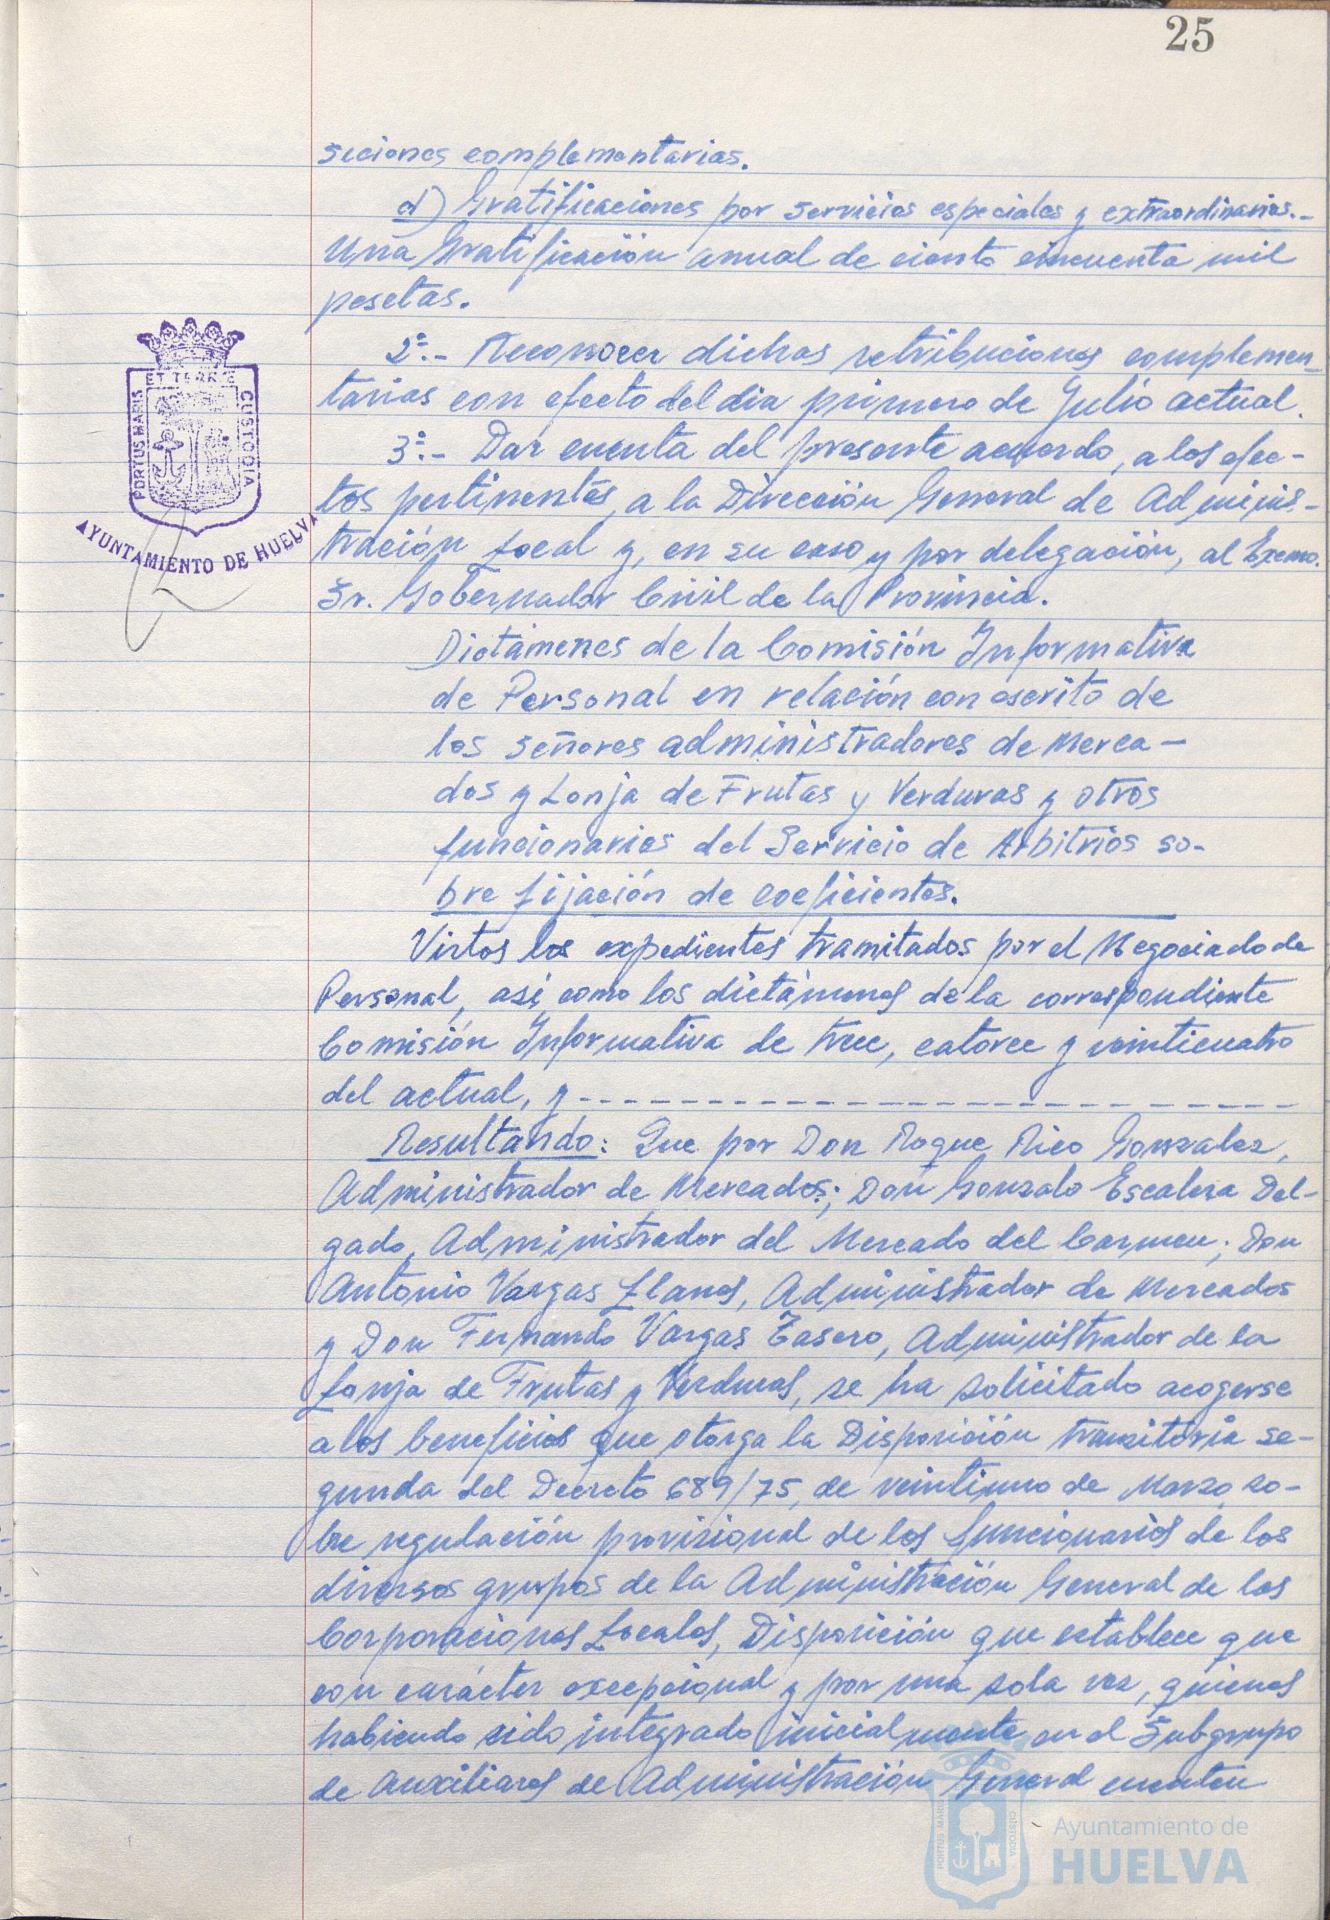 25
siciones complementarias.
d) Gratificaciones por servicios especiales y extraordinarios.-
Una Gratificación anual de ciento cincuenta mil
pesetas.
2º.- Reconocer dichas retribuciones complemen-
tarias con efecto del dia primero de Julio actual.
3º.- Dar cuenta del presente acuerdo, a los efec-
tos pertinentes, a la Dirección General de Adminis-
tración Local y, en su caso y por delegación, al Excmo.
Sr. Gobernador Civil de la Provincia.
ET TERRE
PORTUS MARIS
CUSTODIA
AYUNTAMIENTO DE HUELVA
Dictámenes de la Comisión Informativa
de Personal en relación con escrito de
los señores administradores de Merca-
dos y Lonja de Frutas y Verduras y otros
funcionarios del Servicio de Arbitrios so-
bre fijación de coeficientes.
Vistos los expedientes tramitados por el Negociado de
Personal, asi como los dictámenes de la correspondiente
Comisión Informativa de trece, catorce y veinticuatro
del actual, y - - - - - - - - - - - - - - - - - - - - - -
Resultando: Que por Don Roque Rico Gonzalez,
Administrador de Mercados; Don Gonzalo Escalera Del-
gado, Administrador del Mercado del Carmen; Don
Antonio Vargas Llanes, Administrador de Mercados
y Don Fernando Vargas Tasero, Administrador de la
Lonja de Frutas y Verduras, se ha solicitado acogerse
a los beneficios que otorga la Disposición transitoria se-
gunda del Decreto 689/75, de veintiuno de Marzo, so-
bre regulación provisional de los funcionarios de los
diversos grupos de la Administración General de las
Corporaciones Locales, Disposición que establece que
con carácter excepcional y por una sola vez, quienes
habiendo sido integrado inicialmente en el Subgrupo
de Auxiliares de Administración General cuenten
PORTUS MARIS
CUSTODIA
Ayuntamiento de
HUELVA